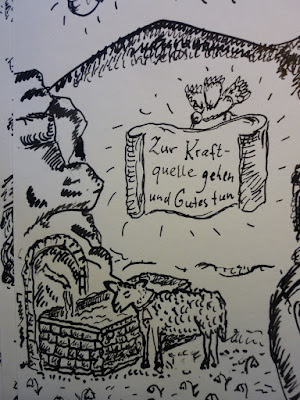 Zur Kraft-
quelle gehen
und Gutes tun